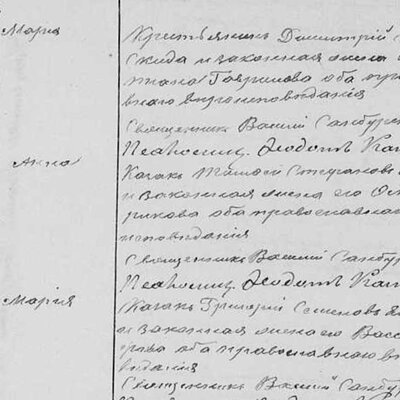 Мария
Крестьянинъ Димитрій
Скида и законная жена
Гаврилова оба пра
внаго вѣроисповѣданія
Священникъ Василій Самбурск
Псаломщ. Ѳеодотъ Кат
Анна
Казакъ
и законная жена его
рикова оба православнаго
исповѣданія
Священникъ Василій Самбур
Псаломщ. Ѳеодотъ Кат
Марія
Казакъ Григорій Семеновъ
и законная жена его Васс
оба православнаго в
вѣданія
Священникъ Василій Самбу